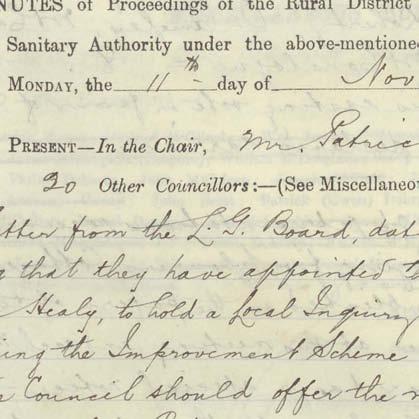 NUTES of Proceedings of the Rural District
Sanitary Authority under the above-mentione
MONDAY, the 11th day of Nov
PRESENT—In the Chair, Mr. Patric
20 Other Councillors:—(See Miscellaneou
etter from the L. G. Board, dat
g that they have appointed
Healy, to hold a Local Inquiry
ing the Improvement Scheme
Council should offer the